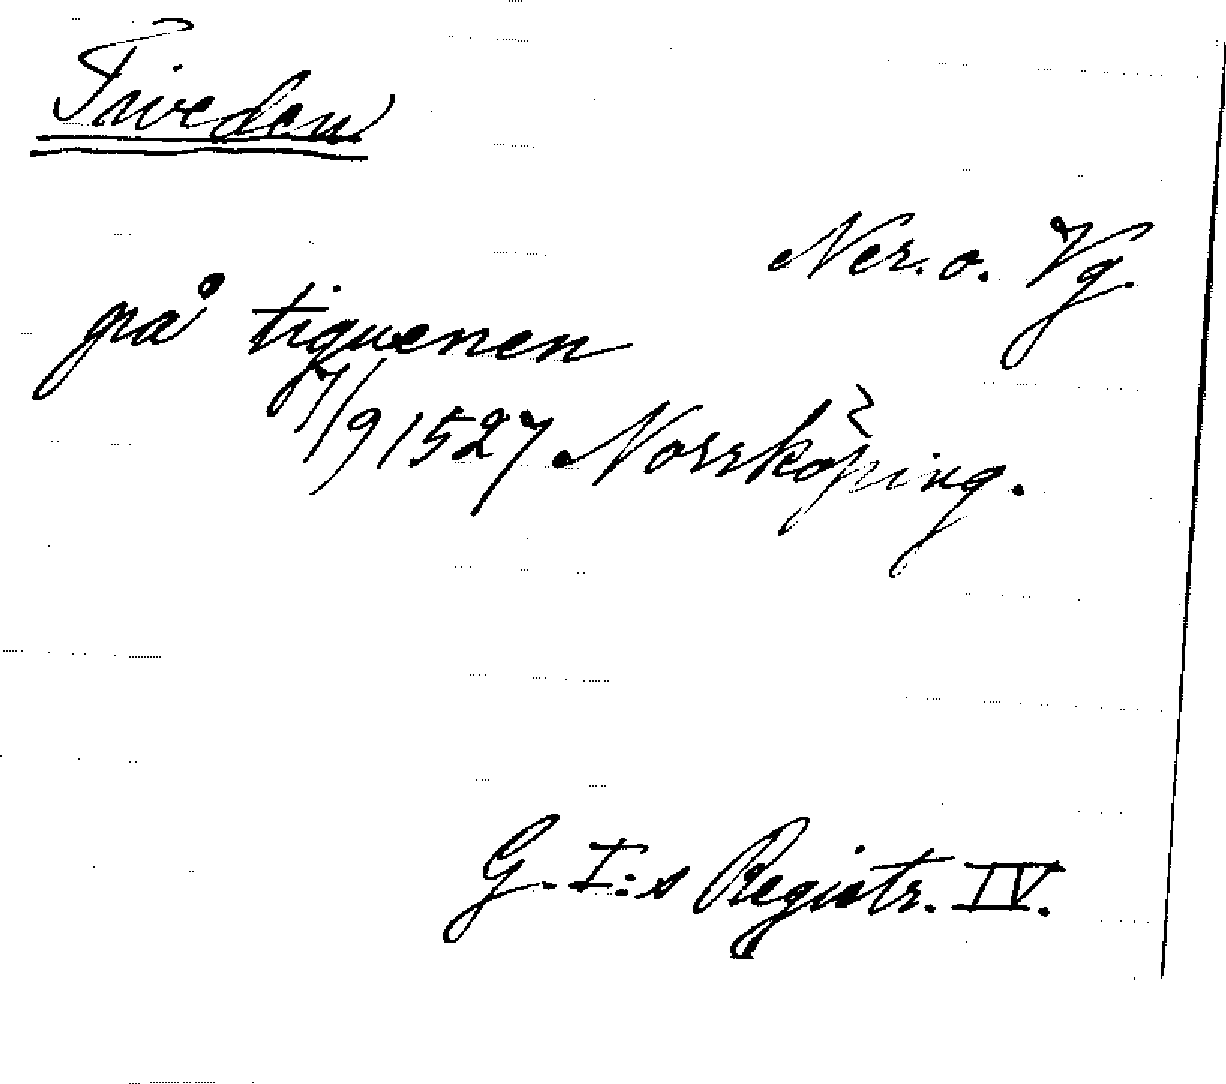 Tiveden
Ner. o. Vg.
på tiguenen
17/9 1527 Norrköping.
G. I:s Registr. IV.